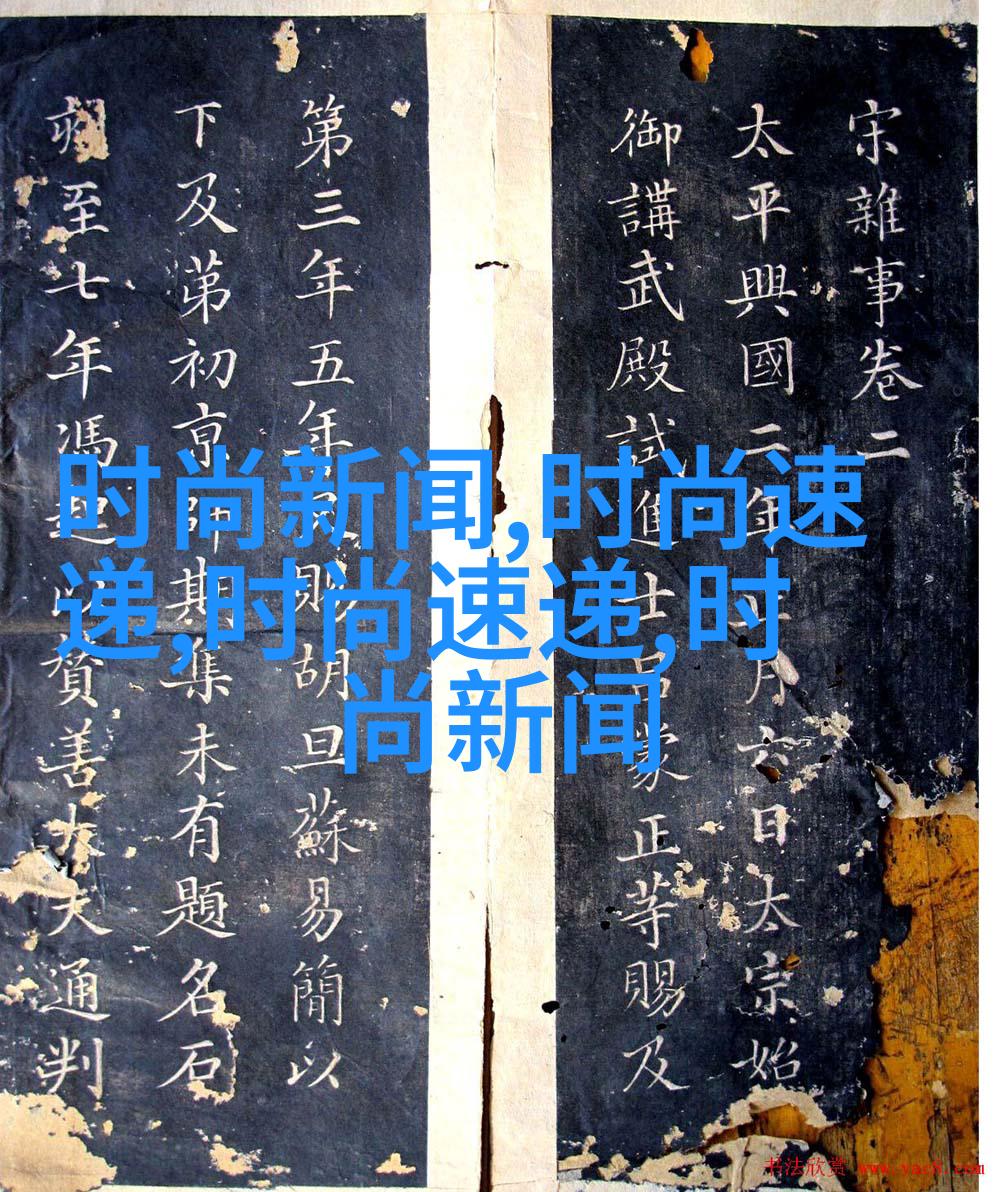 宋雜事卷二
太平興國二年正月六日太宗始
御講武殿試進士呂蒙正等賜及
第三年五年又賜胡旦蘇易簡以
下及第初京師期集未有題名石
至七年馮起以贊善大夫通判
时尚新闻,时尚速
递,时尚速递,时
尚新闻
书法欣赏 www.yac8.com